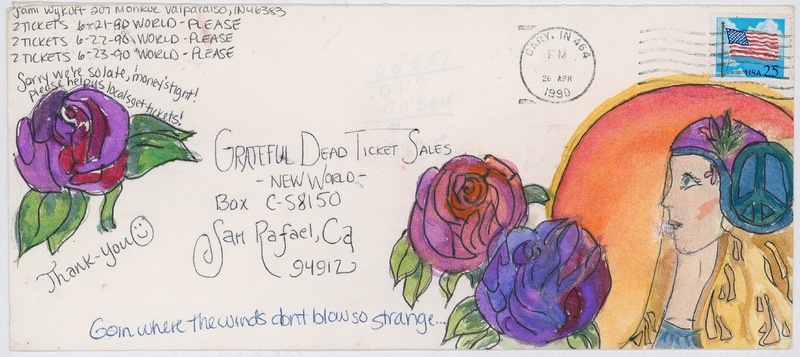 Jami Wykoff 207 Monroe Valparaiso, IN 46383
2 TICKETS 6-21-90 WORLD - PLEASE
2 TICKETS 6-22-90 WORLD - PLEASE
2 TICKETS 6-23-90 WORLD - PLEASE
Sorry we're so late, money's tight!
please help us locals get tickets!
GARY, IN 464
PM
26 APR
1990
USA 25
GRATEFUL DEAD TICKET SALES
- NEW WORLD -
BOX C-S8150
San Rafael, Ca
94912
Thank-You
Goin where the winds dont blow so strange...